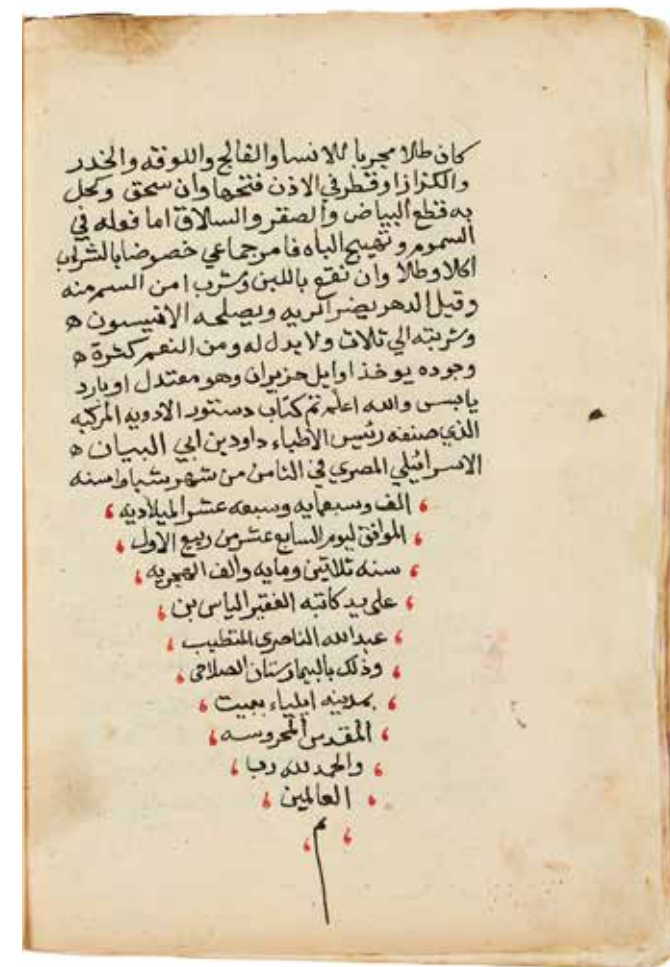 كان طلا مجربا للانسا والفالج واللوقه والخدر
والكزاز اوقطر في الاذن فتحها وان سحق وكحل
به قطع البياض والصقر والسلاق اما قوله في
السموم وتهييج الباه فامر جماعي خصوصا بالشراب
اكلا وطلا وان نقع باللبن وشرب امن السم منه
وقيل الدهر يضر الريه ويصلحه الانيسون ه
وشربته الي ثلاث ولا بدل له ومن النعم كثرة ه
وجوده يوخذ اوايل حزيران وهو معتدل او بارد
يابس والله اعلم تم كتاب دستور الادويه المركبه
الذي صنفه رئيس الاطباء داود بن ابي البيان ه
الاسرائيلي المصري في الثامن من شهر شباط سنه
الف وسبعمايه وسبعه عشر الميلاديه
الموافق ليوم السابع عشر من ربيع الاول
سنه ثلاثين ومايه والف الهجريه
على يد كاتبه الفقير الياس بن
عبدالله الناصري المتطبب
وذلك بالبيمارستان الصلاحي
بمدينه ايلياء ببيت
المقدس المحروسه
والحمد لله رب
العالمين
م